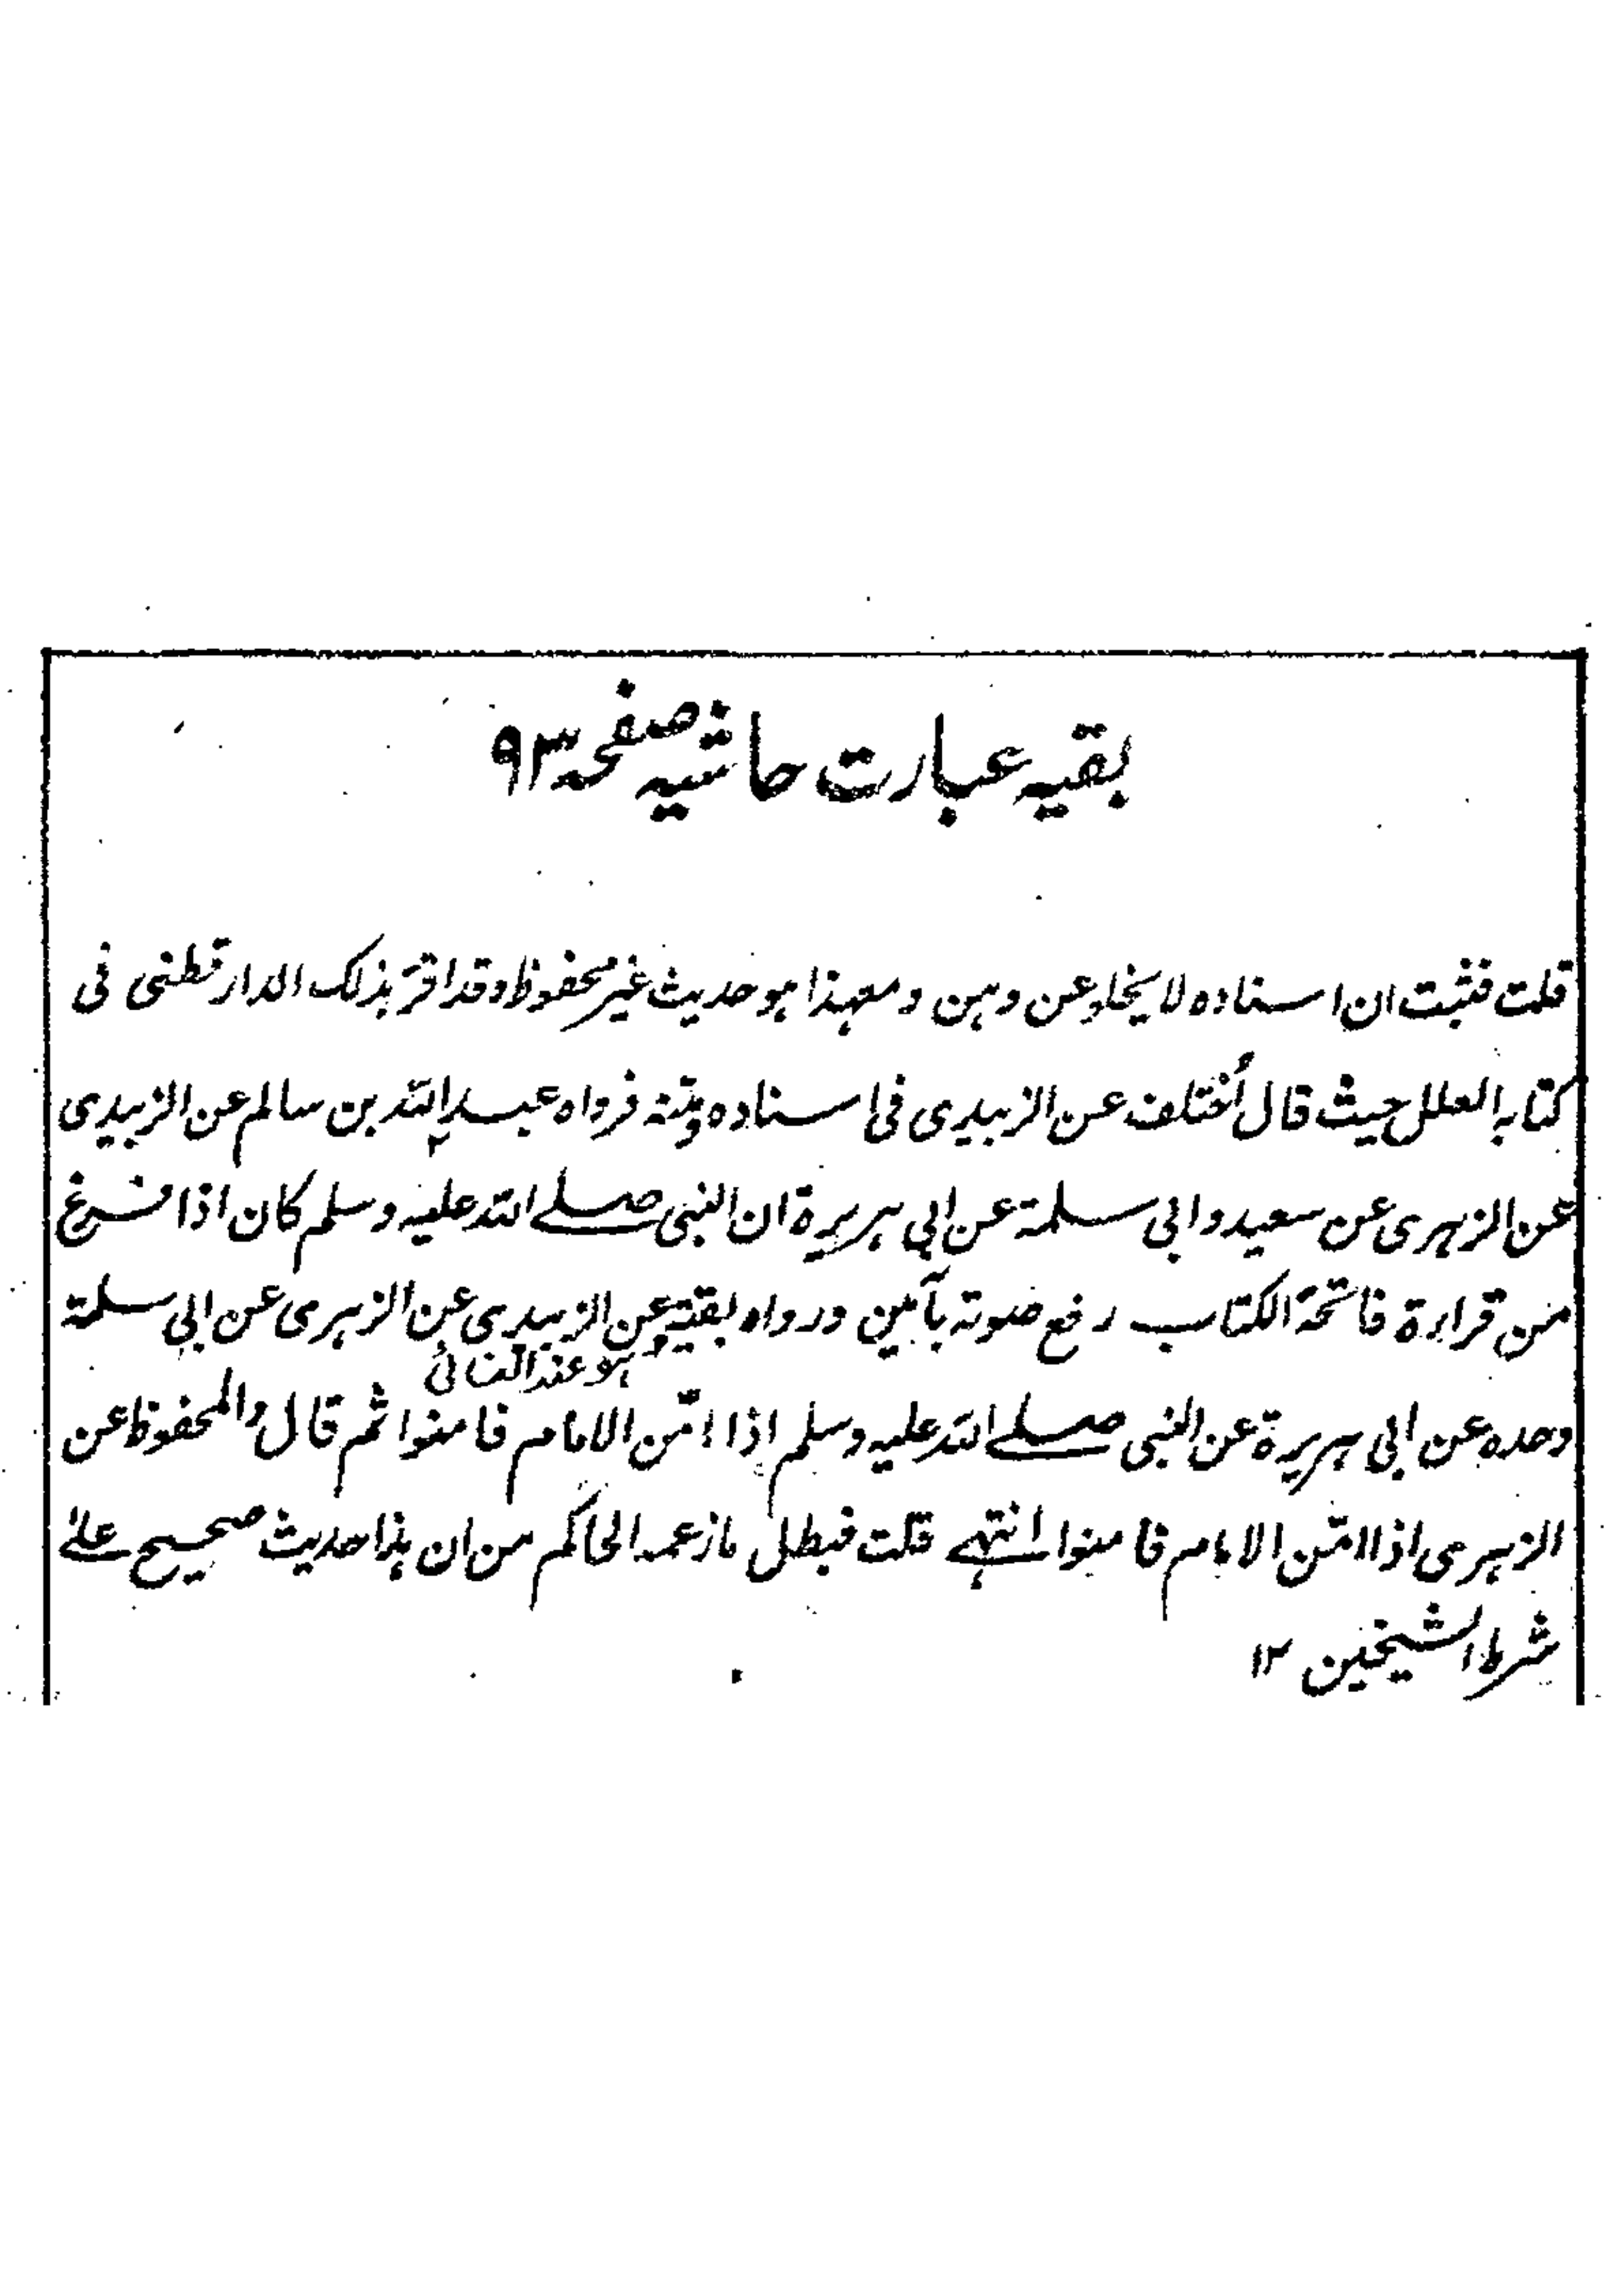 بقیہ عبارت حاشیہ صفحہ ۹۳
قلت فثبت ان اسناده لا یخلو عن وہن ومعہذا ہو حدیث غیر محفوظ وقد اقرّ بذلک الدارقطنی فی
کتابہ العلل حیث قال اُختلف عن الزبیدی فی اسناده ومتنہ فرواه عبد اللہ بن سالم عن الزبیدی
عن الزہری عن سعید وابی سلمۃ عن ابی ہریرۃ ان النبی صلے اللہ علیہ وسلم کان اذا فرغ
من قراءۃ فاتحۃ الکتاب رفع صوتہ بآمین ورواه بقیۃ عن الزبیدی عن الزہری عن ابی سلمۃ
وہو عند النسائی
وحده عن ابی ہریرۃ عن النبی صلے اللہ علیہ وسلم اذا امّن الامام فامنوا ثم قال والمحفوظ عن
الزہری اذا امّن الامام فامنوا انتہے قلت فبطل ما زعمہ الحاکم من ان ہذا حدیث صحیح علےٰ
شرط الشیخین ۱۲